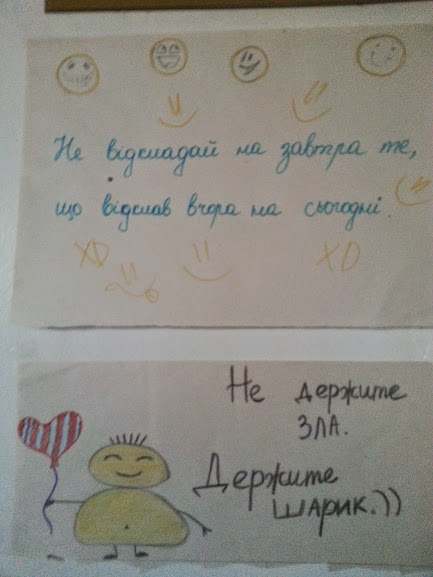 Не відкладай на завтра те,
що відклав вчора на сьогодні.
XD
XD
Не держите
ЗЛА.
Держите
ШАРИК.))